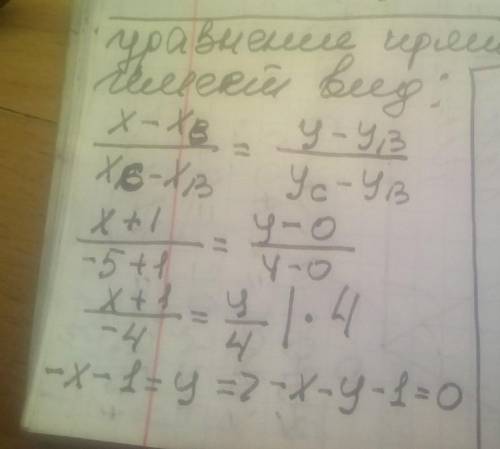 уравнение
имеет вид:
(x - x_B)/(x_C - x_B) = (y - y_B)/(y_C - y_B)
(x + 1)/(-5 + 1) = (y - 0)/(4 - 0)
(x + 1)/(-4) = y/4 | · 4
-x - 1 = y => -x - y - 1 = 0